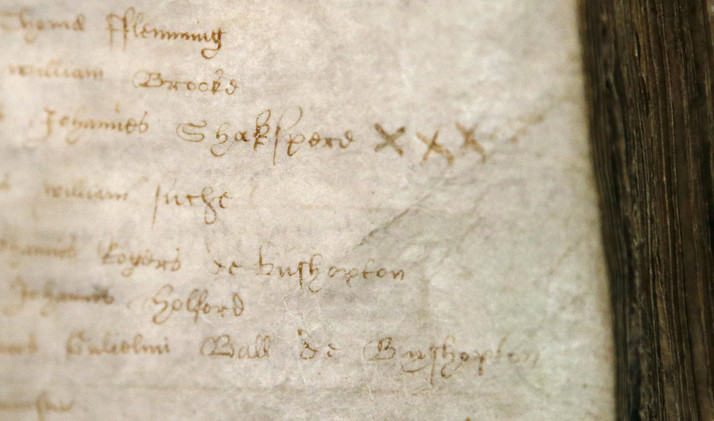 Thoma Fflemming
william Brooke
Johannes Shakspere X X X
william suche
Rogers de bushopton
Johannis Holford
Gulielmi Ball de Bushopton